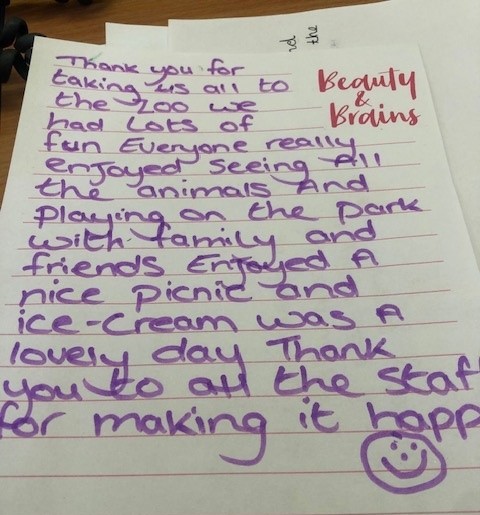 Thank you for
taking us all to
the zoo we
had Lots of
fun Everyone really
enjoyed seeing All
the animals And
Playing on the Park
with family and
friends Enjoyed A
nice picnic and
ice-cream was A
lovely day Thank
you to all the Staf
for making it happ
Beauty
&
Brains
the